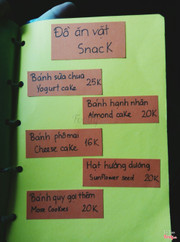 Đồ ăn vặt
Snack
Bánh sữa chua
Yogurt cake 25K
Bánh hạnh nhân
Almond cake 20K
Bánh phô mai
Cheese cake 16K
Hạt hướng dương
Sunflower seed 20K
Bánh quy gọi thêm
More Cookies 20K